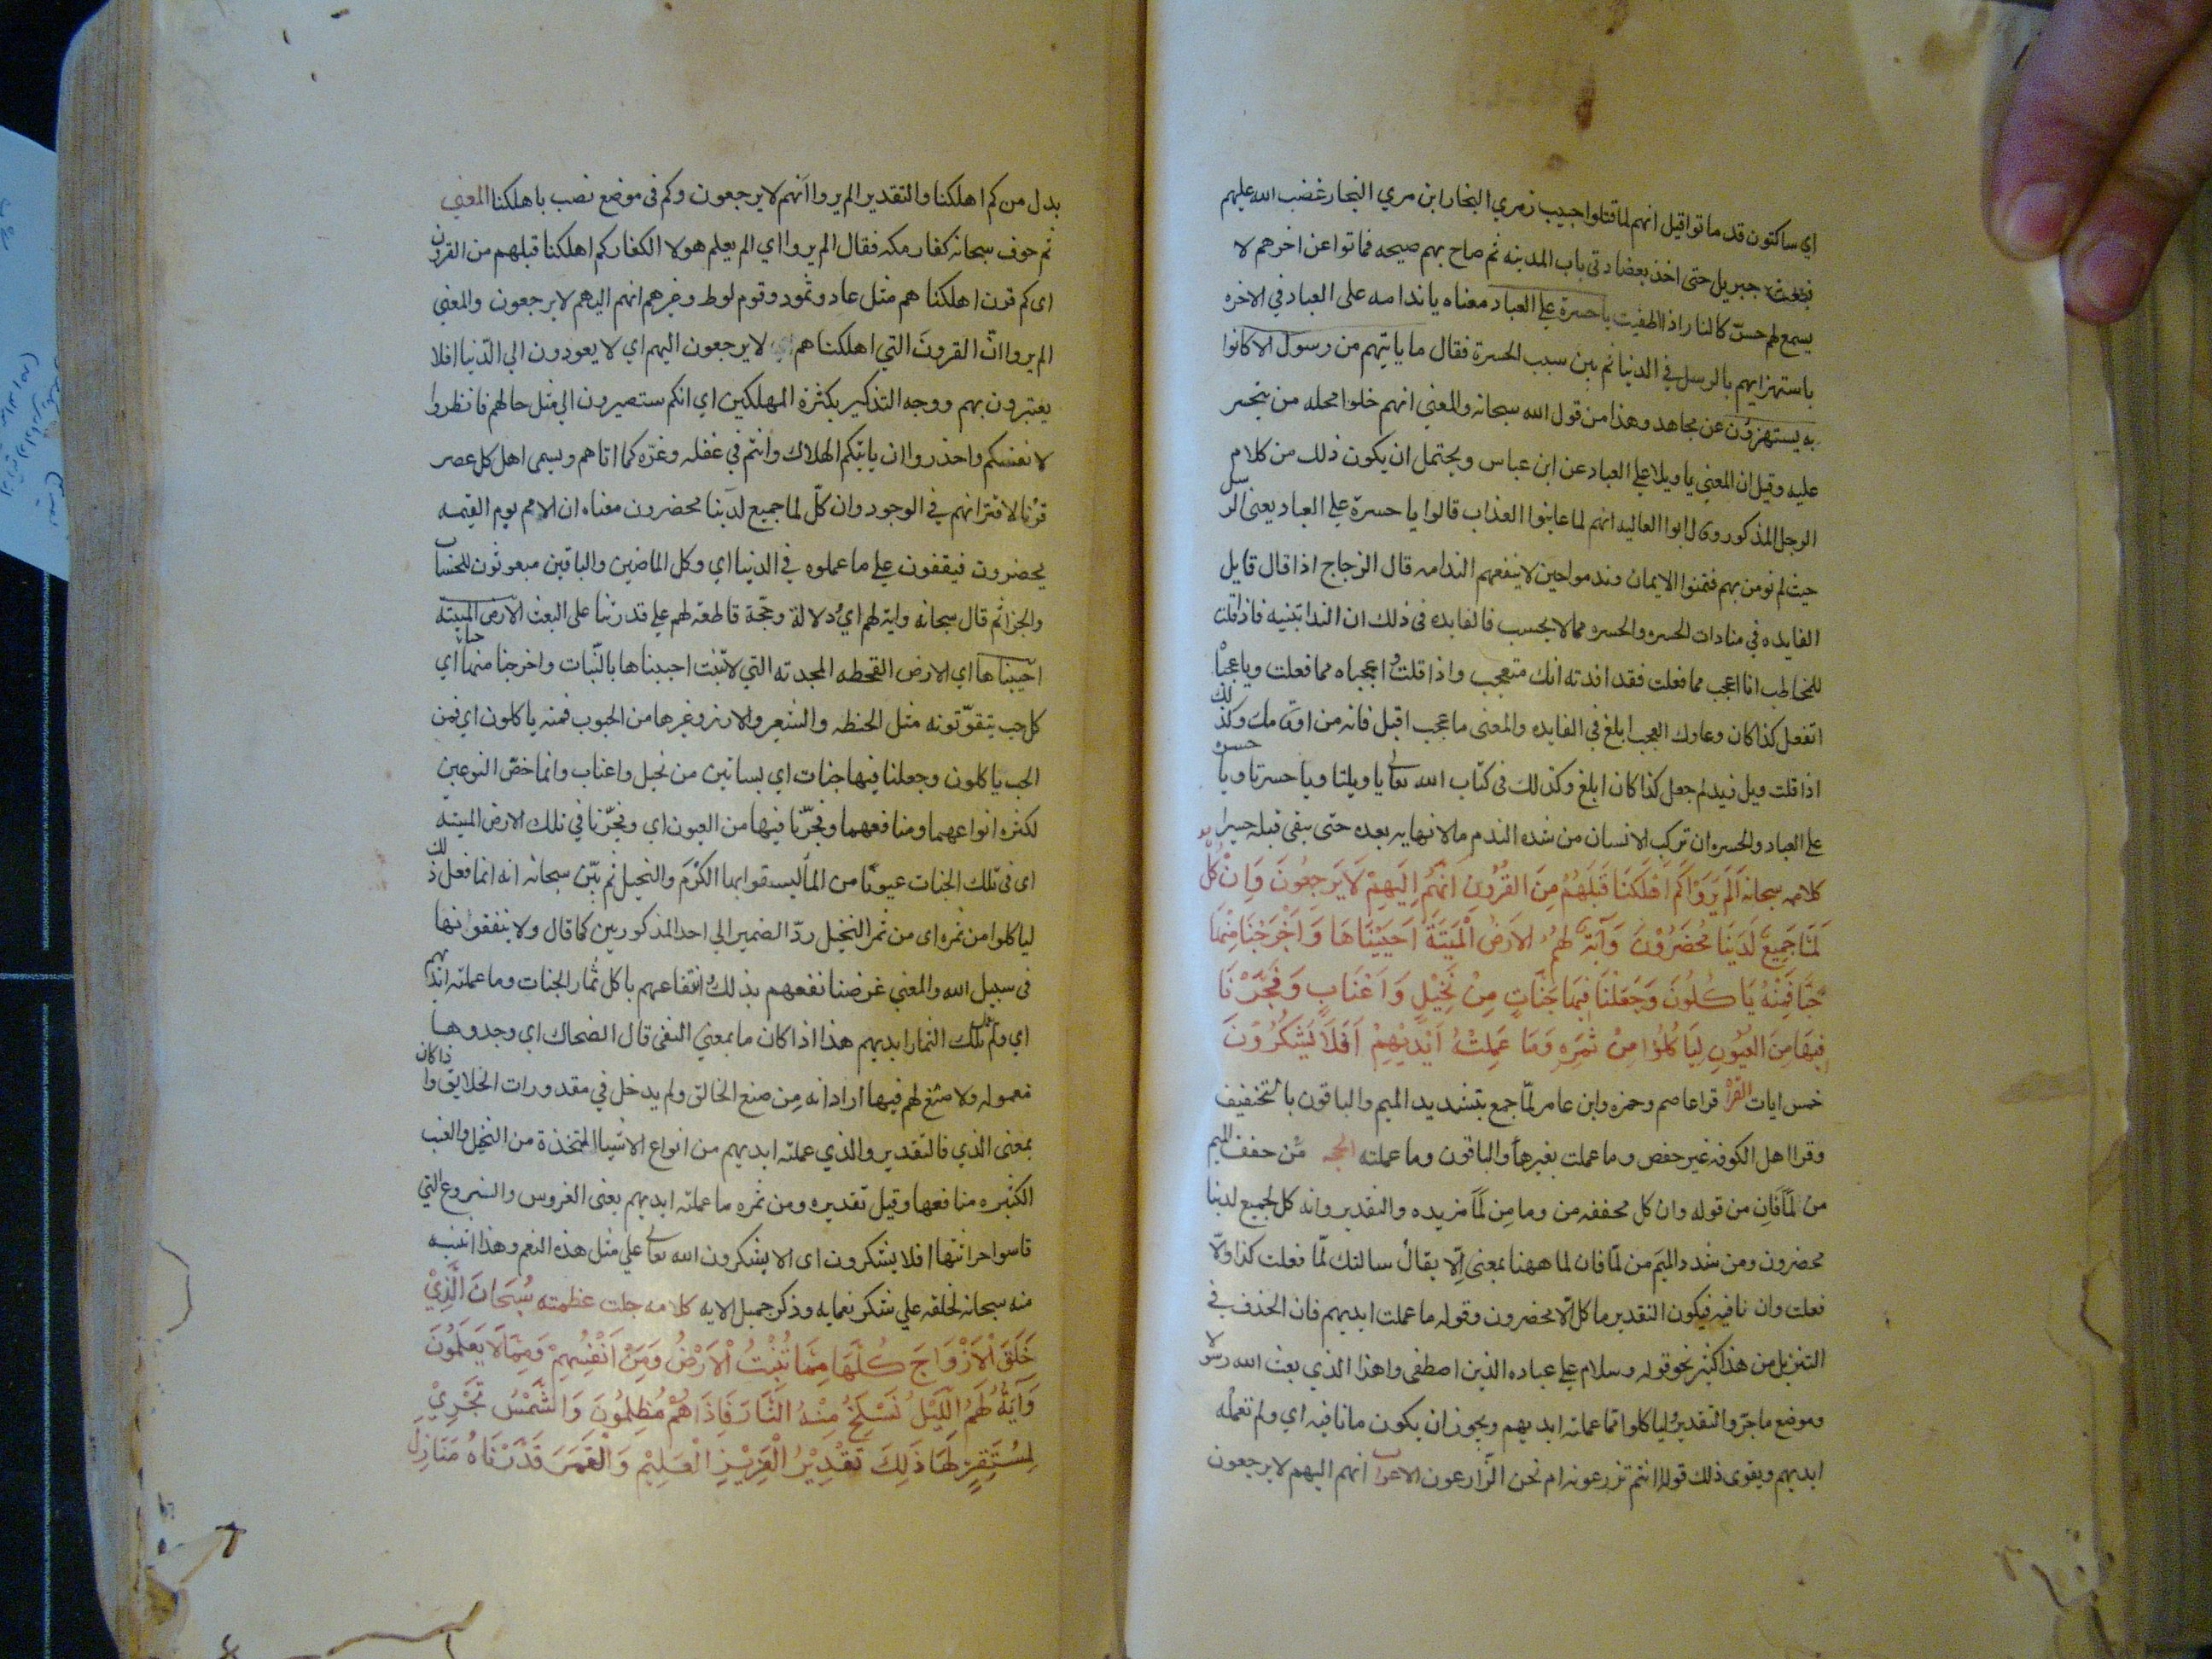 اي ساكتون قد ماتوا قيل انهم لما قتلوا حبيب بن مري النجار ابن مري النجار غضب الله عليهم
فبعث جبريل حتى اخذ بعضادتى باب المدينه ثم صاح بهم صيحه فماتوا عن اخرهم لا
يسمع لهم حسّ كالنار اذا اطفيت يا حسرة علي العباد معناه يا ندامه على العباد في الاخره
باستهزايهم بالرسل في الدنيا ثم بين سبب الحسرة فقال ما ياتيهم من رسول الا كانوا
به يستهزؤن عن مجاهد وهذا من قول الله سبحانه والمعني انهم حلوا محله من يتحسر
عليه وقيل ان المعني يا ويلا علي العباد عن ابن عباس ويحتمل ان يكون ذلك من كلام
الرجل المذكور وقال ابوا العاليه انهم لما عاينوا العذاب قالوا يا حسرة علي العباد يعنى الرسل
حيث لم نومن بهم فتمنوا الايمان وندموا حين لا ينفعهم الندامه قال الزجاج اذا قال قايل
الفايده في منادات الحسره والحسره مما لا يجيب فالفايده فى ذلك ان الندا تنبيه فاذا قلت
للمخاطب انا اعجب مما فعلت فقد افدته انك متعجب واذا قلت واعجباه مما فعلت ويا عجبًا
اتفعل كذا كان دعاوك العجب ابلغ في الفايده والمعنى ما عجب اقبل فانه من اوقاتك وكذلك
اذا قلت ويل لزيد لم جعل كذا كان ابلغ وكذلك فى كتاب الله تعالى يا ويلتا ويا حسرتا ويا حسره
علي العباد والحسره ان تركب الانسان من شده الندم ما لا نهايه بعده حتى يبقى قبله حسيرا
كلامه سبحانه اَلَمْ يَرَوْا كَمْ اَهْلَكْنَا قَبْلَهُمْ مِنَ القُرُونِ اَنَّهُمْ اِلَيْهِمْ لَا يَرْجِعُونَ وَاِنْ كُلٌّ
لَمَّا جَمِيعٌ لَدَيْنَا مُحْضَرُوْنَ وَآيَةٌ لَهُمُ الاَرْضُ الْمَيْتَةُ اَحْيَيْنَاهَا وَاَخْرَجْنَا مِنْهَا
حَبًّا فَمِنْهُ يَاكُلُونَ وَجَعَلْنَا فِيهَا جَنَّاتٍ مِنْ نَخِيْلٍ وَاَعْنَابٍ وَفَجَّرْنَا
فِيهَا مِنَ العُيُونِ لِيَاكُلُوا مِنْ ثَمَرِهِ وَمَا عَمِلَتْهُ اَيْدِيْهِمْ اَفَلَا يَشْكُرُوْنَ
خمس ايات القراة قرا عاصم وحمزه وابن عامر لمّا جمع بتشديد الميم والباقون بالتخفيف
وقرا اهل الكوفه غير حفص وما عملت بغير هاٍ والباقون وما عملته الحجه من خفف الميم
من لَمَا فان من قوله وان كل مخففه من وما مِن لَمَا مزيده والتقدير وانه كل لجميع لدينا
محضرون ومن شدد الميم من لمّا فان لما ههنا بمعنى اِلّا يقال سالتك لمّا فعلت كذا والّا
فعلت وان نافيه فيكون التقدير ما كل الّا محضرون وقوله ما عملت ايديهم فان الحذف في
التنزيل من هذا كثير نحو قوله وسلام علي عباده الذين اصطفى واهذا الذي بعث الله رسولا
وموضع ما جرّ والتقدير ليا كلوا مما عملته ايديهم ويجوز ان يكون ما نافيه اي ولم تعمله
ايديهم ويقوى ذلك قوله اانتم تزرعونه ام نحن الزّارعون الاعراب انهم اليهم لا يرجعون
بدل من كم اهلكنا والتقدير الم يروا انهم لا يرجعون وكم فى موضع نصب باهلكنا المعني
ثم خوف سبحانه كفار مكه فقال الم يروا اي الم يعلم هولا الكفار كم اهلكنا قبلهم من القرون
اى كم قرن اهلكناهم مثل عاد وثمود وقوم لوط وغيرهم انهم اليهم لا يرجعون والمعني
الم يروا انّ القرونَ التي اهلكناهم اي لا يرجعون اليهم اي لا يعودون الي الدّنيا افلا
يعتبرون بهم ووجه التذكير بكثرة المهلكين اي انكم ستصيرون الي مثل حالهم فانظروا
لانفسكم واحذروا ان ياتيكم الهلاك وانتم في غفله وغرّه كما اتاهم ويسمى اهل كل عصر
قرْنا لاقترانهم في الوجود وان كلّ لما جميع لدينا محضرون معناه ان الامم يوم القيمه
يحضرون فيقفون علي ما عملوه في الدنيا اي وكل الماضين والباقين مبعوثون للحساب
والجزا ثم قال سبحانه واية لهم اي دلالة وحجّة قاطعة لهم علي قدرتنا على البعث الارض الميته
احييناها اي الارض القحطه المجدبه التي لا تنبت احييناها بالنّبات واخرجنا منها حبا اي
كل حب يتقوّتونه مثل الحنطه والشعير والارز وغيرها من الحبوب فمنه ياكلون اي فمن
الحب ياكلون وجعلنا فيها جنات اي بساتين من نخيل واعناب وانما خصّ النوعين
لكثره انواعهما ومنافعهما وفجّرنا فيها من العيون اي وفجّرنا في تلك الارض الميته
اى فى تلك الجنات عيونًا من الما ليسقوا بها الكَرْمَ والنخيل ثم بيّن سبحانه انه انما فعل ذلك
لياكلوا من ثمره اى من ثمر النخيل ردّ الضمير الي احد المذكورين كما قال ولا ينفقونها
فى سبيل الله والمعني غرضنا نفعهم بذلك وانتفاعهم باكل ثمار الجنات وما عملته ايديهم
اي ولم تلك الثمار ايديهم هذا اذا كان ما بمعني النفى قال الضحاك اي وجدوها
معموله ولا صنع لهم فيها اراد انه مِن صنع الخالق ولم يدخل في مقدورات الخلايق واذا كان
بمعنى الذي فالتقدير والذي عملته ايديهم من انواع الاشيا المتخذة من النخيل والعنب
الكثيره منافعها وقيل تقديره ومن ثمره ما عملته ايديهم يعنى الغروس والزروع التي
قاسوا حراثتها افلا يشكرون اى الا يشكرون الله تعالى علي مثل هذه النعم وهذا تنبيه
منه سبحانه لخلقه علي شكر نعمايه وذكر جميل الايه كلامه جلت عظمته سُبْحَانَ الَّذِيْ
خَلَقَ الْاَزْوَاجَ كُلَّهَا مِمَّا تُنْبِتُ الْاَرْضُ وَمِنْ اَنْفُسِهِمْ وَمِمَّا لَا يَعْلَمُوْنَ
وَآيَةٌ لَهُمُ اللَّيْلُ نَسْلَخُ مِنْهُ النَّهَارَ فَاِذَا هُمْ مُظْلِمُوْنَ وَالشَّمْسُ تَجْرِيْ
لِمُسْتَقَرٍّ لَهَا ذَلِكَ تَقْدِيْرُ الْعَزِيْزِ الْعَلِيْمِ وَالْقَمَرَ قَدَّرْنَاهُ مَنَازِلَ